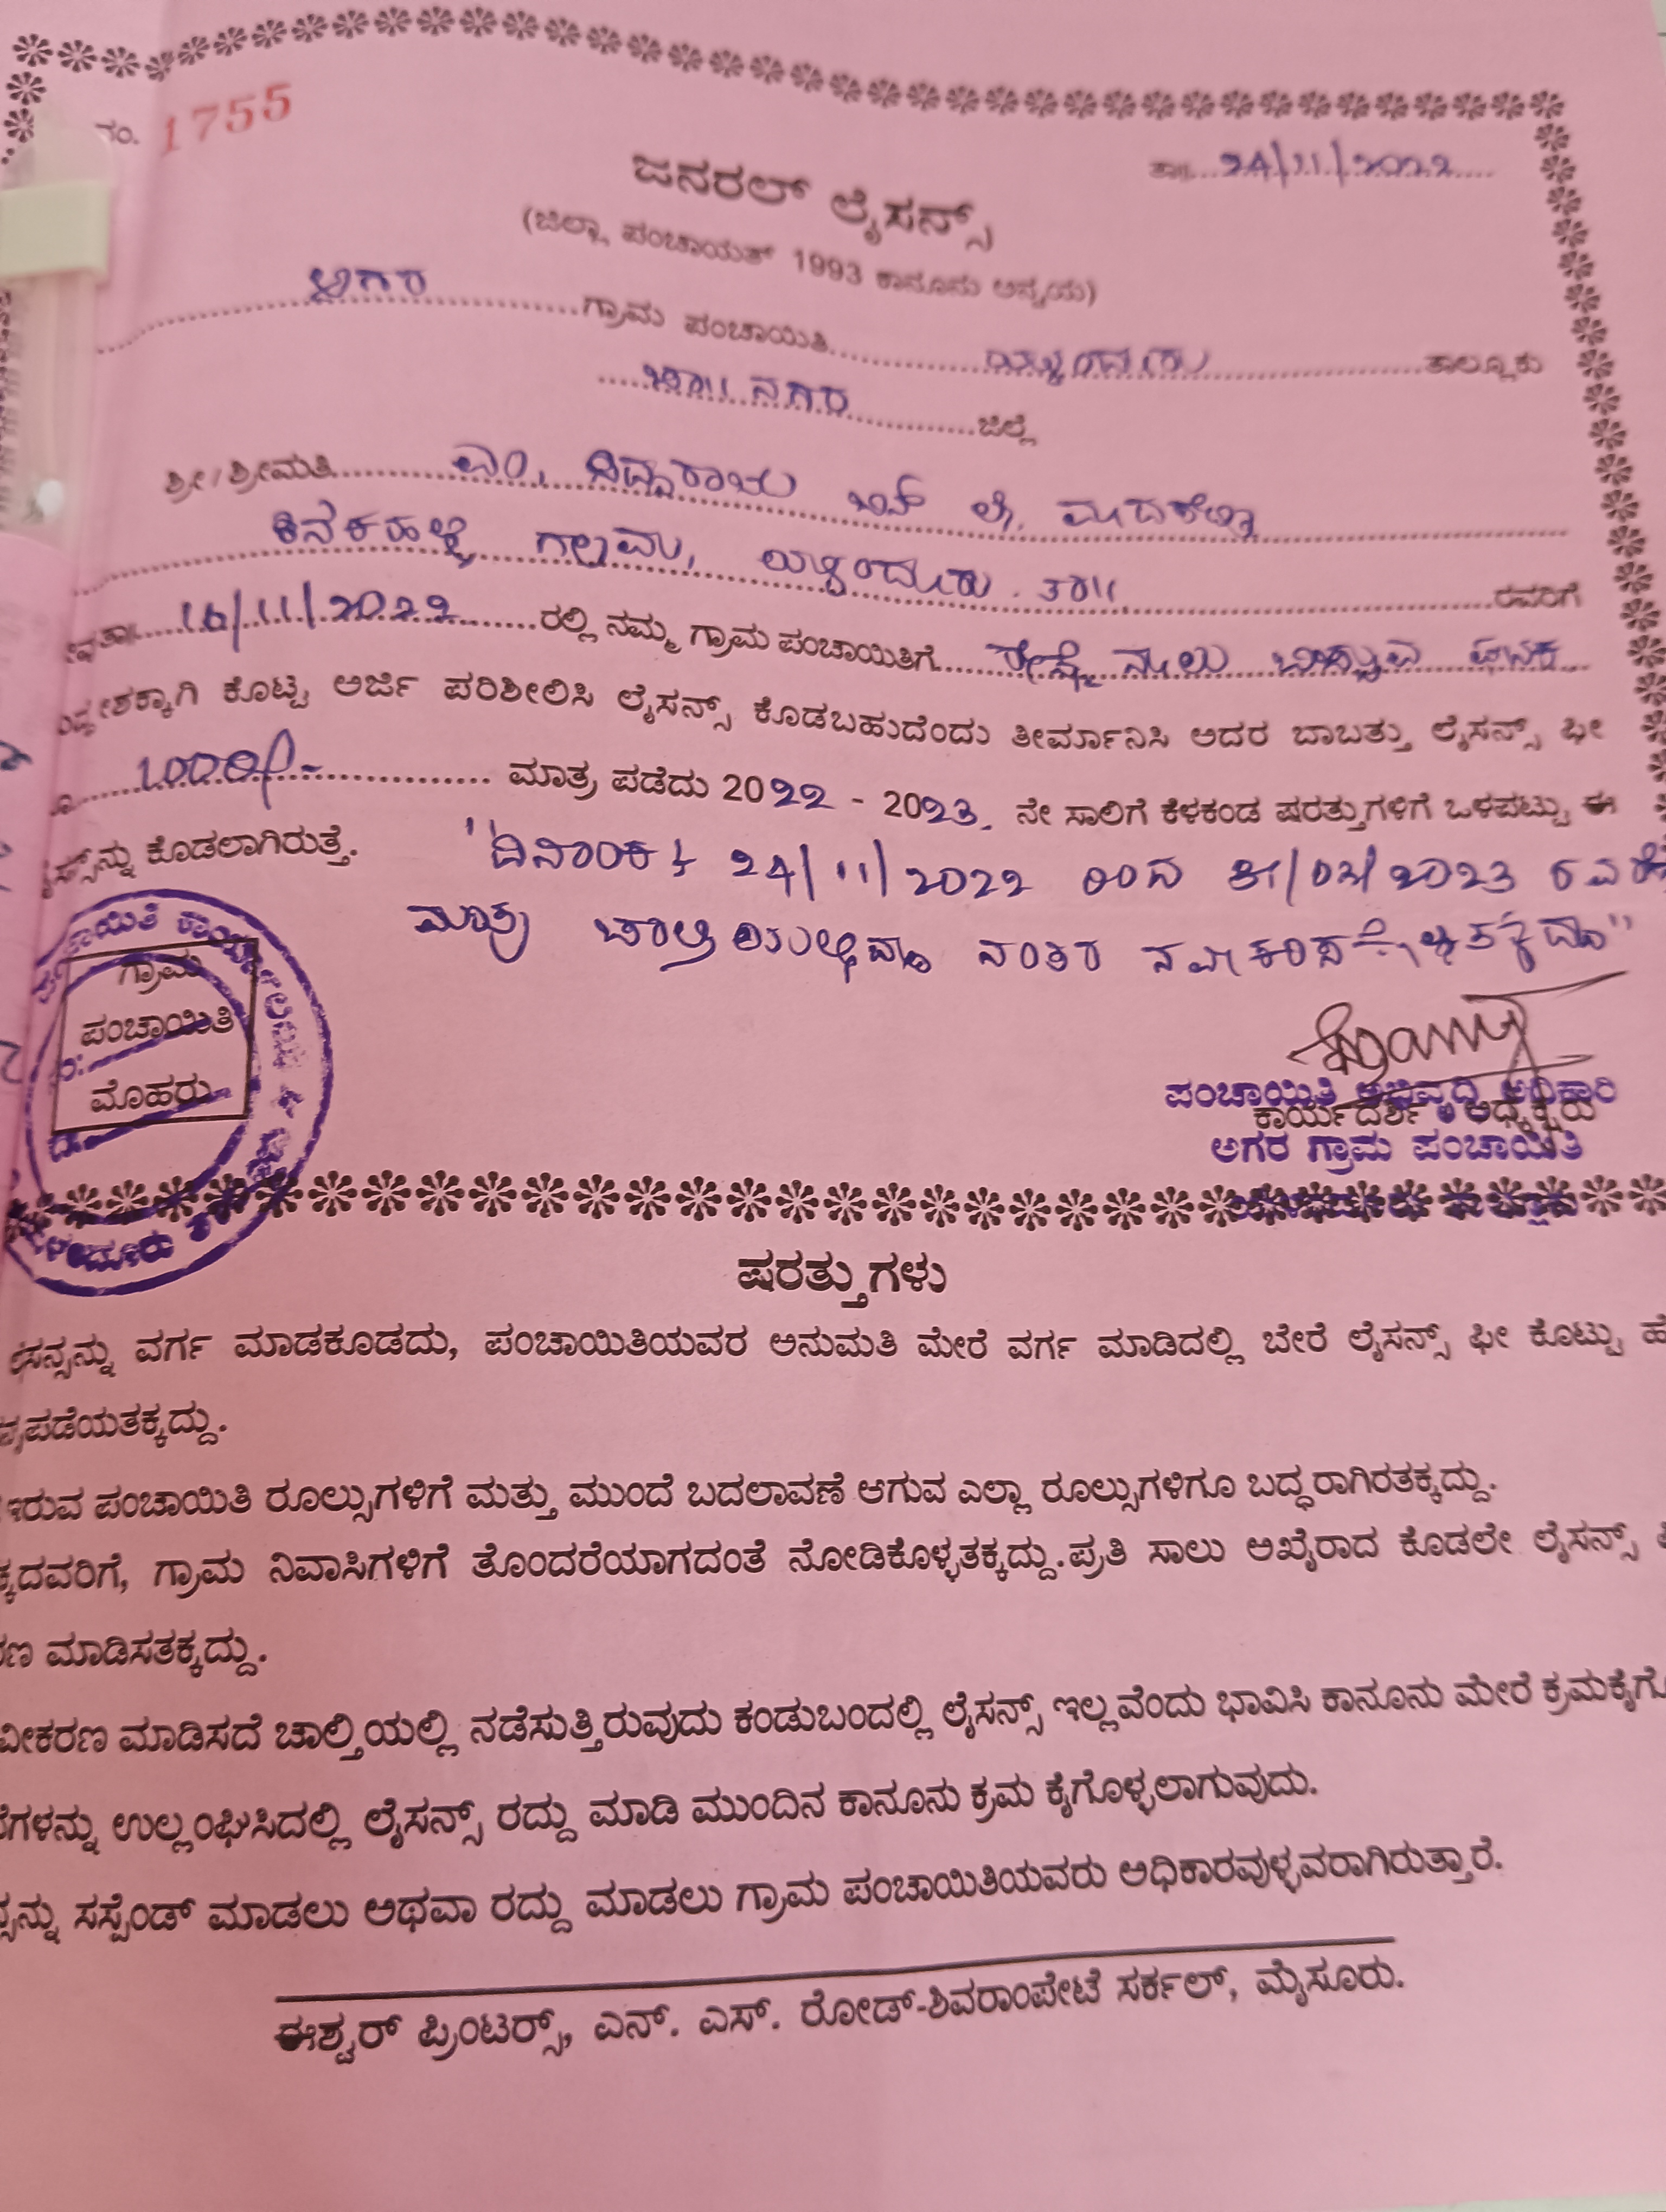 ನಂ. 1755
ತಾ॥ 24/11/2022
ಜನರಲ್ ಲೈಸನ್ಸ್
(ಜಿಲ್ಲಾ ಪಂಚಾಯತ್ 1993 ಕಾನೂನು ಅನ್ವಯ)
ಅಗರ ಗ್ರಾಮ ಪಂಚಾಯಿತಿ ಯಳಂದೂರು ತಾಲ್ಲೂಕು
ಚಾ॥ನಗರ ಜಿಲ್ಲೆ
ಶ್ರೀ/ಶ್ರೀಮತಿ ಎಂ. ಸಿದ್ದರಾಜು ಬಿನ್ ಲೇ.
ಕಿನಕಹಳ್ಳಿ ಗ್ರಾಮ, ಯಳಂದೂರು ತಾ॥ ರವರಿಗೆ
ತಾ॥ 16/11/2022 ರಲ್ಲಿ ನಮ್ಮ ಗ್ರಾಮ ಪಂಚಾಯಿತಿಗೆ ರೇಷ್ಮೆ ನೂಲು ಬಿಚ್ಚುವ ಘಟಕ
ಕೊಟ್ಟ ಅರ್ಜಿ ಪರಿಶೀಲಿಸಿ ಲೈಸನ್ಸ್ ಕೊಡಬಹುದೆಂದು ತೀರ್ಮಾನಿಸಿ ಅದರ ಬಾಬತ್ತು ಲೈಸನ್ಸ್ ಫೀ
1000/- ಮಾತ್ರ ಪಡೆದು 2022 - 2023 ನೇ ಸಾಲಿಗೆ ಕೆಳಕಂಡ ಷರತ್ತುಗಳಿಗೆ ಒಳಪಟ್ಟು ಈ
ಕೊಡಲಾಗಿರುತ್ತೆ. "ದಿನಾಂಕ: 24/11/2022 ರಿಂದ 31/03/2023 ರವರೆ
ಮಾತ್ರ ನಂತರ
ಗ್ರಾಮ
ಪಂಚಾಯಿತಿ
ಮೊಹರು
ಪಂಚಾಯಿತಿ ಅಭಿವೃದ್ಧಿ ಅಧಿಕಾರಿ
ಕಾರ್ಯದರ್ಶಿ ಅಧ್ಯಕ್ಷರು
ಅಗರ ಗ್ರಾಮ ಪಂಚಾಯಿತಿ
ಷರತ್ತುಗಳು
ವರ್ಗ ಮಾಡಕೂಡದು, ಪಂಚಾಯಿತಿಯವರ ಅನುಮತಿ ಮೇರೆ ವರ್ಗ ಮಾಡಿದಲ್ಲಿ ಬೇರೆ ಲೈಸನ್ಸ್ ಫೀ ಕೊಟ್ಟು
ಪಡೆಯತಕ್ಕದ್ದು.
ಇರುವ ಪಂಚಾಯಿತಿ ರೂಲ್ಸುಗಳಿಗೆ ಮತ್ತು ಮುಂದೆ ಬದಲಾವಣೆ ಆಗುವ ಎಲ್ಲಾ ರೂಲ್ಸುಗಳಿಗೂ ಬದ್ಧರಾಗಿರತಕ್ಕದ್ದು.
ಕ್ಕದವರಿಗೆ, ಗ್ರಾಮ ನಿವಾಸಿಗಳಿಗೆ ತೊಂದರೆಯಾಗದಂತೆ ನೋಡಿಕೊಳ್ಳತಕ್ಕದ್ದು.ಪ್ರತಿ ಸಾಲು ಅಖೈರಾದ ಕೊಡಲೇ ಲೈಸನ್ಸ್
ರಣ ಮಾಡಿಸತಕ್ಕದ್ದು.
ವೀಕರಣ ಮಾಡಿಸದೆ ಚಾಲ್ತಿಯಲ್ಲಿ ನಡೆಸುತ್ತಿರುವುದು ಕಂಡುಬಂದಲ್ಲಿ ಲೈಸನ್ಸ್ ಇಲ್ಲವೆಂದು ಭಾವಿಸಿ ಕಾನೂನು ಮೇರೆ ಕ್ರಮಕೈಗೊ
ಗಳನ್ನು ಉಲ್ಲಂಘಿಸಿದಲ್ಲಿ ಲೈಸನ್ಸ್ ರದ್ದು ಮಾಡಿ ಮುಂದಿನ ಕಾನೂನು ಕ್ರಮ ಕೈಗೊಳ್ಳಲಾಗುವುದು.
ಸಸ್ಪೆಂಡ್ ಮಾಡಲು ಅಥವಾ ರದ್ದು ಮಾಡಲು ಗ್ರಾಮ ಪಂಚಾಯಿತಿಯವರು ಅಧಿಕಾರವುಳ್ಳವರಾಗಿರುತ್ತಾರೆ.
ಈಶ್ವರ್ ಪ್ರಿಂಟರ್ಸ್, ಎನ್. ಎಸ್. ರೋಡ್-ಶಿವರಾಂಪೇಟೆ ಸರ್ಕಲ್, ಮೈಸೂರು.